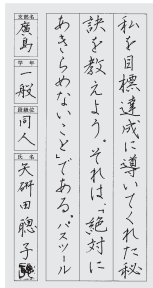 私を目標達成に導いてくれた秘
訣を教えよう。それは、「絶対に
あきらめないこと」である。パスツール
支部名
廣島
学年
一般
段級位
同人
氏名
矢研田聰子